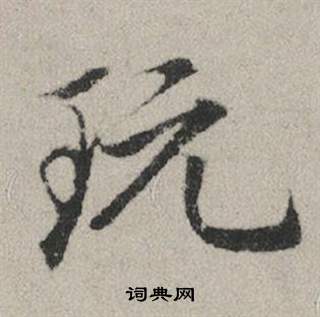 玩
词典网